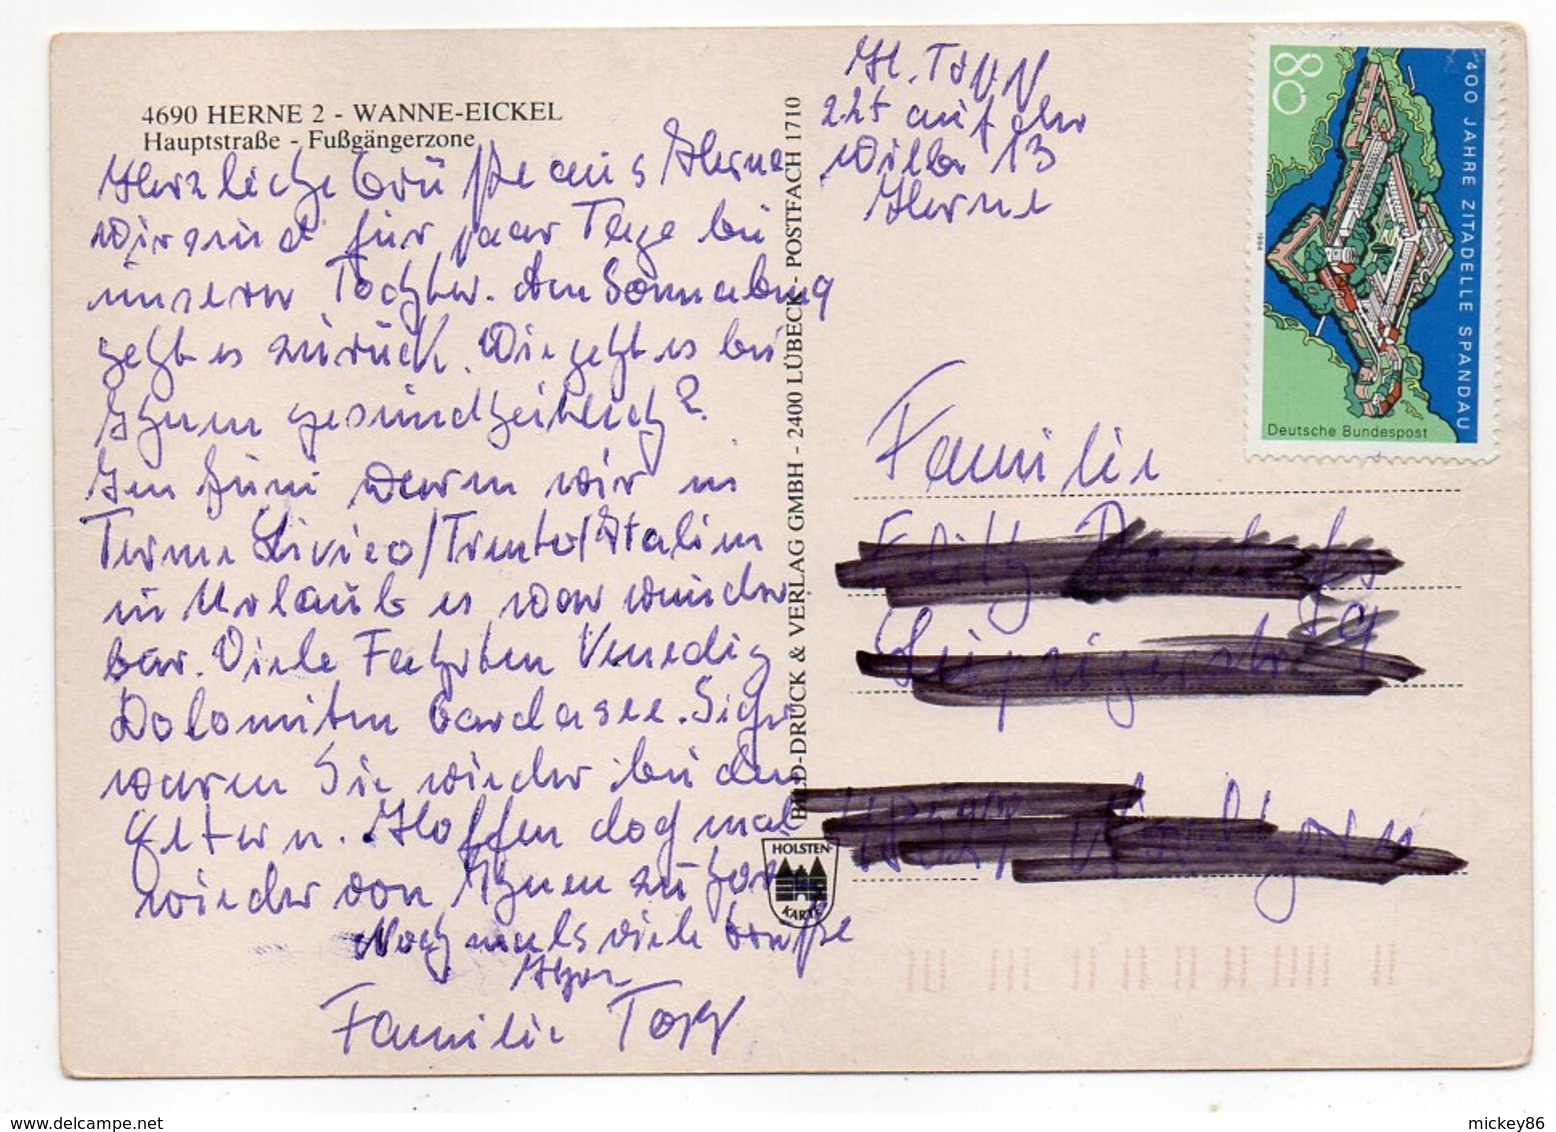 4690 HERNE 2 - WANNE-EICKEL
Hauptstraße - Fußgängerzone
Herzliche Grüße aus Herne
Wir sind für paar Tage bei
unserer Tochter. Am Sonnabend
geht es zurück. Wie geht es bei
Ihnen gesundheitlich?
Im Juni waren wir in
Terme Livico/Trento/Italien
in Urlaub es war wunder
bar. Viele Fahrten Venedig
Dolomiten Gardasee. Sicher
waren Sie wieder bei den
Eltern. Hoffen doch mal
wieder von Ihnen zu hören
Nochmals viele Grüße
Ihre
Familie Topp
BILD-DRUCK & VERLAG GMBH - 2400 LÜBECK - POSTFACH 1710
HOLSTEN-
KARTE
H. Topp
z.Zt auf der
Wilbe 13
Herne
80
400 JAHRE ZITADELLE SPANDAU
Deutsche Bundespost
Familie
mickey86